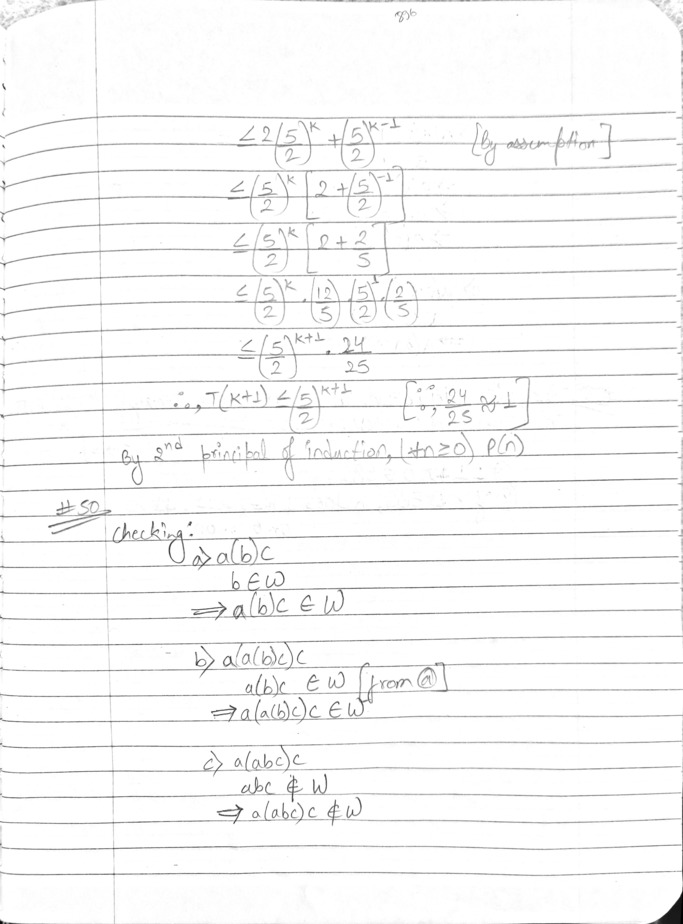 ≤ 2(5/2)^k + (5/2)^(k-1) [by assumption]
≤ (5/2)^k [2 + (5/2)^-1]
≤ (5/2)^k [2 + 2/5]
≤ (5/2)^k · (12/5) · (5/2)^1 · (2/5)
≤ (5/2)^(k+1) · 24/25
∴, T(k+1) ≤ (5/2)^(k+1) [∵, 24/25 ≈ 1]
By 2nd principal of induction, (∀n≥0) P(n)
#50
Checking:
a> a(b)c
b ∈ W
⇒ a(b)c ∈ W
b> a(a(b)c)c
a(b)c ∈ W [from ⓐ]
⇒ a(a(b)c)c ∈ W
c> a(abc)c
abc ∉ W
⇒ a(abc)c ∉ W